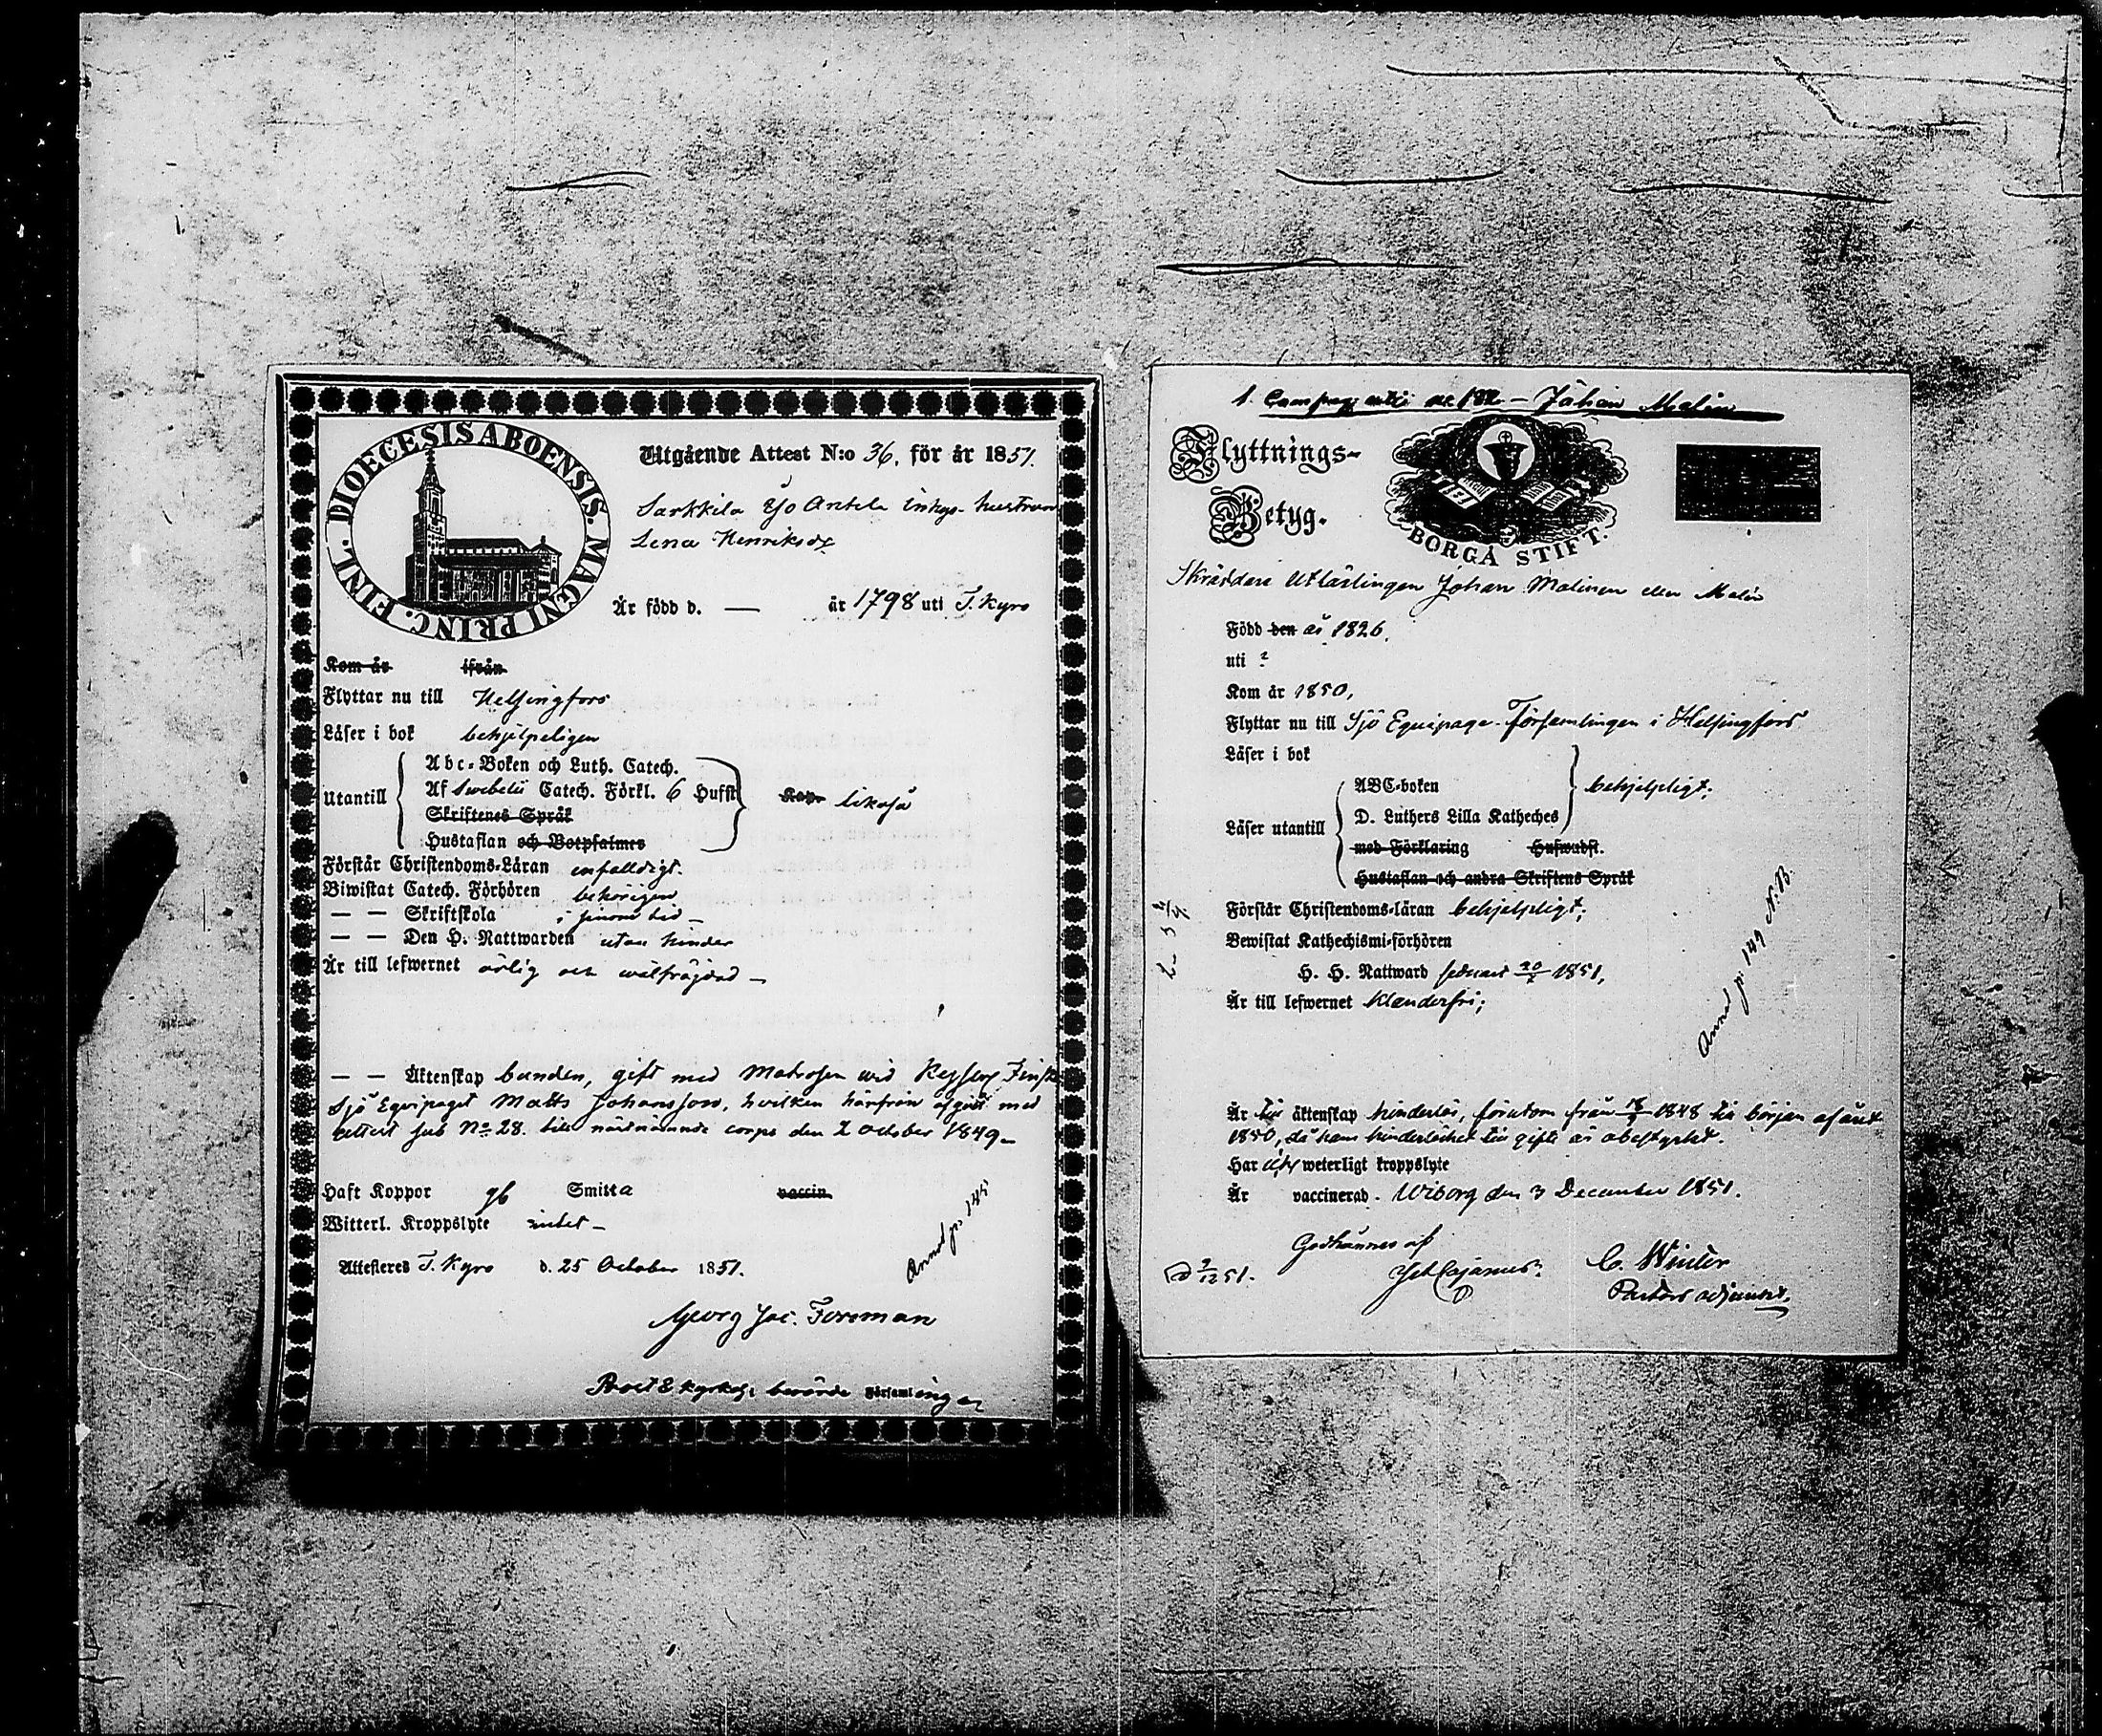 DIOECESIS ABOENSIS. MAGNI PRINC. FINL.
Utgående Attest N:o 36. för år 1851.
Sarkkila Ylö Anttila inhys. hustrun
Lena Henriksdr
Är född d. — år 1798 uti T. Kyro
Kom år ifrån
Flyttar nu till Helsingfors
Läser i bok behjelpeligen
Abc-Boken och Luth. Catech.
Utantill Af Swebelii Catech. Förkl. 6 Hufst. likaså
Skriftenes Språk
Hustaflan och Botpsalmer
Förstår Christendoms-Läran enfaldigt.
Biwistat Catech. Förhören behörigen
— — Skriftskola i sinom tid —
— — Den H. Nattwarden utan hinder
Är till lefwernet ärlig och wälfrägdad —
— — Äktenskap bunden, gift med Matrosen wid Kejserl. Finska
Sjö Equipaget Matts Johansson, hvilken härifrån afgått med
attest sub No 28. till nästnämnde corps den 2 October 1849 —
Haft Koppor Smitta vaccin.
Witterl. Kroppslyte intet —
Annot p. 145
Attesteres T. Kyro d. 25 October 1851.
Georg Jac. Forsman
Prost & Kyrkoh. i berörde Församlingen
1. Compagniet No 122 — Johan Malin
Flyttnings-
Betyg.
BORGÅ STIFT.
Skräddare Utlärlingen Johan Malinen eller Malin
Född den år 1826.
uti ?
Kom år 1850,
Flyttar nu till Sjö Equipage-Församlingen i Helsingfors
Läser i bok
ABC-boken behjelpligt;
Läser utantill D. Luthers Lilla Katheches
med Förklaring Hufwudst.
Hustaflan och andra Skriftens Språk
Förstår Christendoms-läran behjelpligt;
Bewistat Kathechismi-förhören
H. H. Nattward sednast 20/7 1851,
Är till lefwernet klanderfri;
Annot p. 149 N.B.
Är till äktenskap hinderlös, förutom från 18/9 1848 till början af året
1850, då hans hinderlöshet till gifte är obestyrkt.
Har ej weterligt kroppslyte
Är vaccinerad. Wiborg den 3 December 1851.
Godkännes af
C. Winter
Joh Cajanus.
Pastors adjunct.